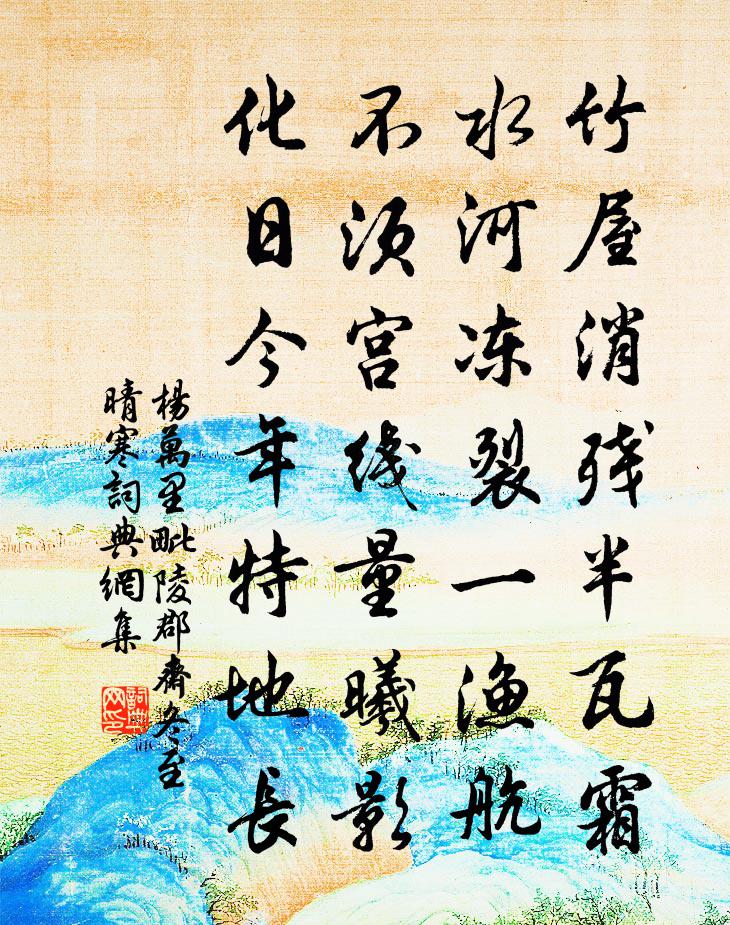 竹屋消残半瓦霜
水河冻裂一渔航
不须宫线量曦影
化日今年特地長
楊萬里毗陵郡齋冬至
晴寒詞典網集
詞典
网印